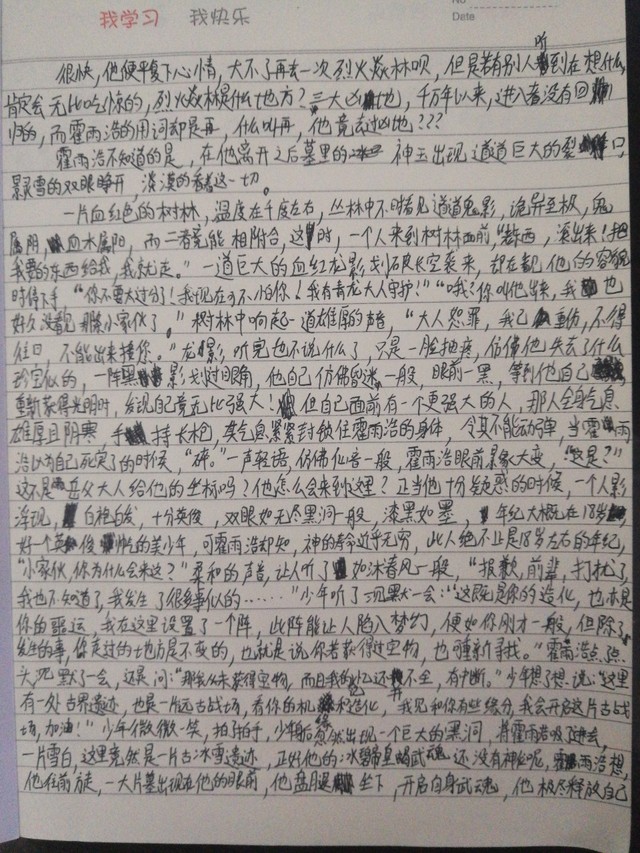 我学习 我快乐
No
Date
很快，他便平复下心情，大不了再去一次烈火焱林呗，但是若有别人听到在想什么，
肯定会无比吃惊的，烈火焱林是什么地方？三大凶地，千万年以来，进入者没有回
归的，而霍雨浩的用词却是再，什么叫再，他竟去过凶地？？？
霍雨浩不知道的是，在他离开之后墓里的 神玉出现道道巨大的裂 口
暴雪的双眼睁开，淡漠的看着这一切。
一片血红色的树林，温度在千度左右，丛林中不时看见道道鬼影，诡异至极，鬼
属阴， 血木属阳，而二者竟能相附合，这时，一个人来到树林面前“ 西，滚出来！把
我要的东西给我，我就走。”一道巨大的血红龙影划破长空袭来，却在看 他的容貌
时停下手“你不要太过分了！我现在可不怕你！我有青龙大人守护！”“哦？你叫他出来，我 也
好久没看见那条小家伙了。”树林中响起一道雄厚的声音，“大人恕罪，我已 重伤，不得
往日，不能出来接您。”龙影，听完也不说什么了，只是一脸肉疼，仿佛他失去了什么
珍宝似的，一阵黑 影划过眼角，他自己仿佛昏迷一般，眼前一黑，等到他自己
重新获得光明时，发现自己竟无比强大！ 但自己面前有一个更强大的人，那人全身气息
雄厚且阴寒，手 持长枪，其气息紧紧封锁住霍雨浩的身体，令其不能动弹，当霍雨
浩以为自己死定了的时候，“砰。”一声轻语，仿佛仙音一般，霍雨浩眼前景象大变，“这是？”
这不是岳父大人给他的坐标吗？他怎么会来到这里？正当他十分疑惑的时候，一个人影
浮现， 白袍白发，十分英俊，双眼如无尽黑洞一般，漆黑如墨， 年纪大概在18岁
好一个英俊 的美少年，可霍雨浩却知，神的寿命近乎无穷，此人绝不止是18岁左右的年纪，
“小家伙，你为什么会来这？”柔和的声音，让人听了 如沐春风一般，“报歉，前辈，打扰了，
我也不知道了，我发生了很多事似的……”少年听了沉默一会：“这既是你的造化，也亦是
你的噩运，我在这里设置了一个阵，此阵能让人陷入梦幻，便如你刚才一般，但除了
发生的事，你走过的地方是不变的，也就是说你若获得过宝物，也可重新寻找。”霍雨浩点点
头沉默了一会，这是问：“那我从未获得宝物，而且我的记忆还 不全，有中断。”少年想了想说：“这里
有一处古界遗迹，也是一片远古战场，看你的机 和造化，“我见和你有些缘分，我会开启这片古战
场，加油！”少年微微一笑，拍拍手，少年后 然出现一个巨大的黑洞，将霍雨浩吸了进去，
一片雪白，这里竟然是一片古冰雪遗迹，正好他的冰碧帝皇蝎武魂还没有神化呢，霍雨浩想，
他往前方走，一大片墓出现在他的眼前，他盘腿 坐下，开启自身武魂，他极尽释放自己